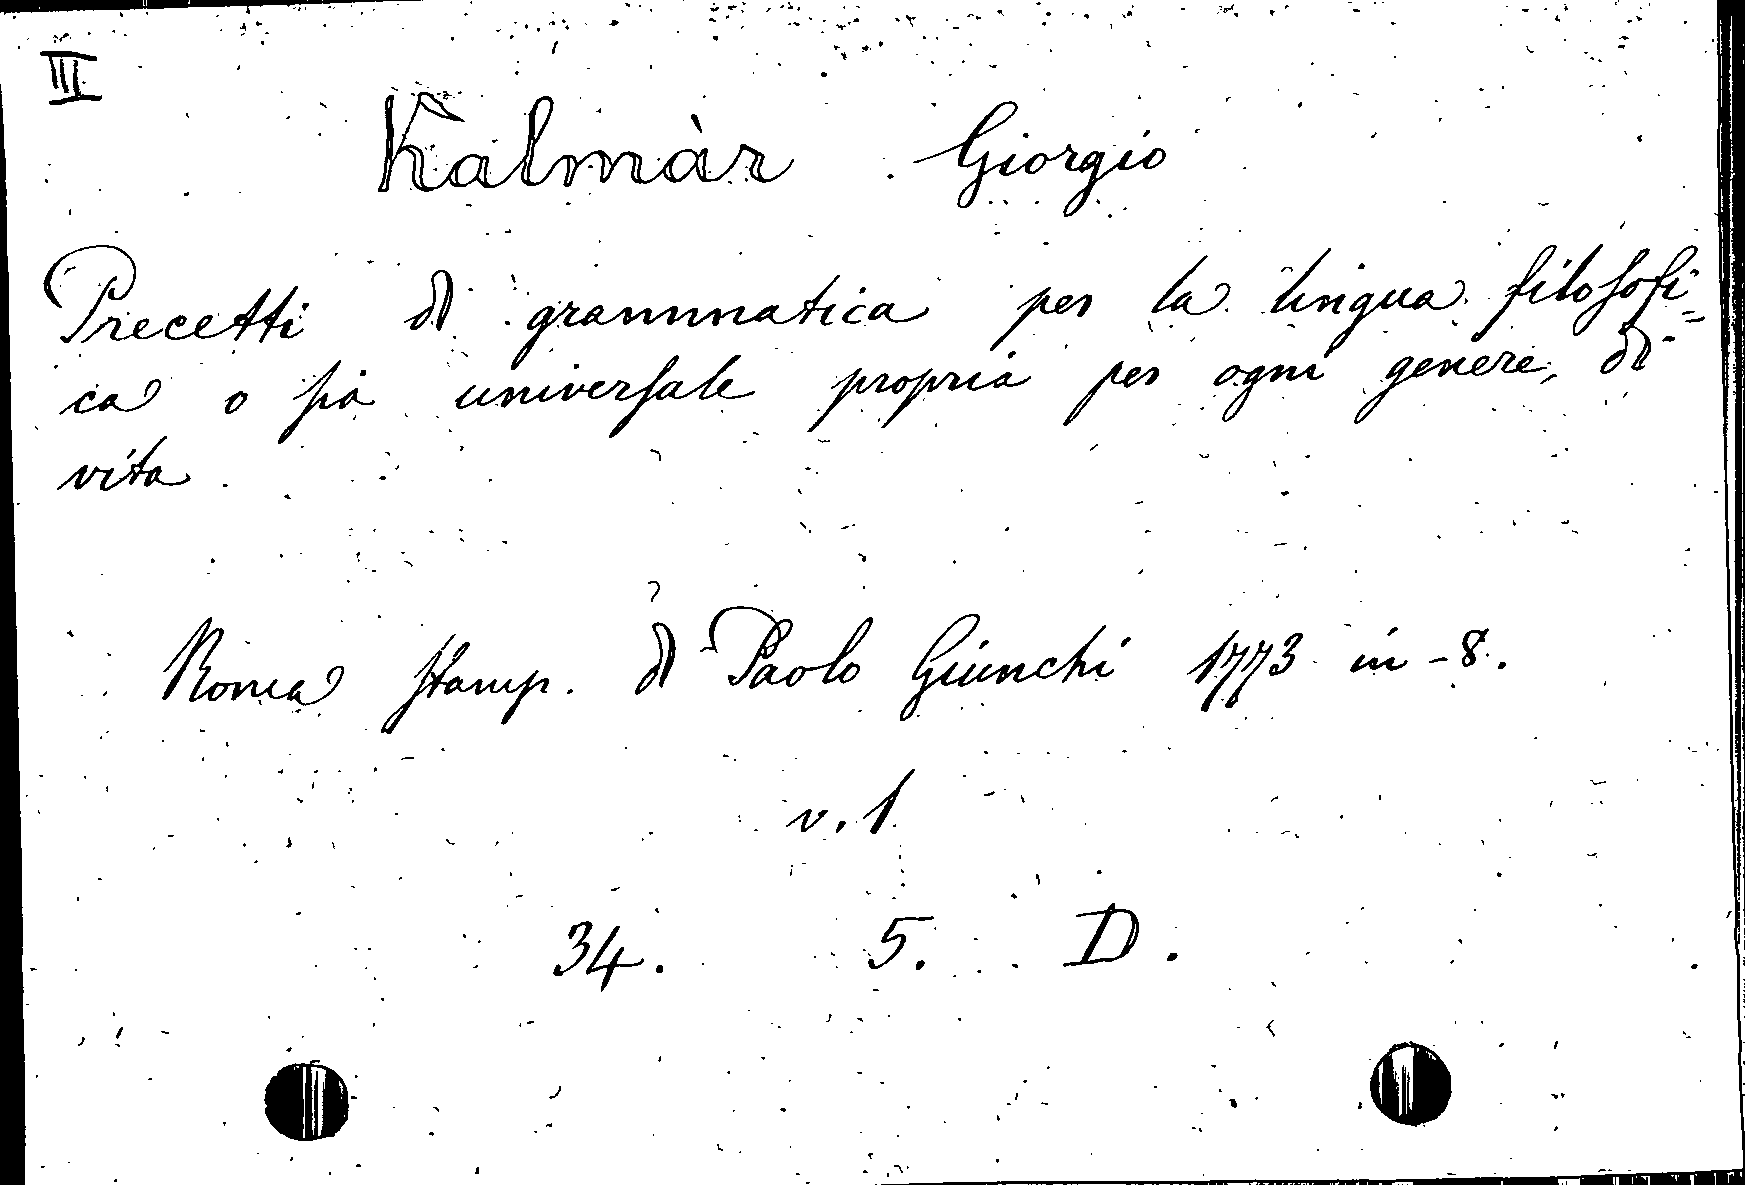 III
Kalmàr Giorgio
Precetti di grammatica per la lingua filosofi=
ca o sia universale propria per ogni genere, di
vita
Roma stamp. di Paolo Giunchi 1773 in-8.
v. 1
34. 5. D.